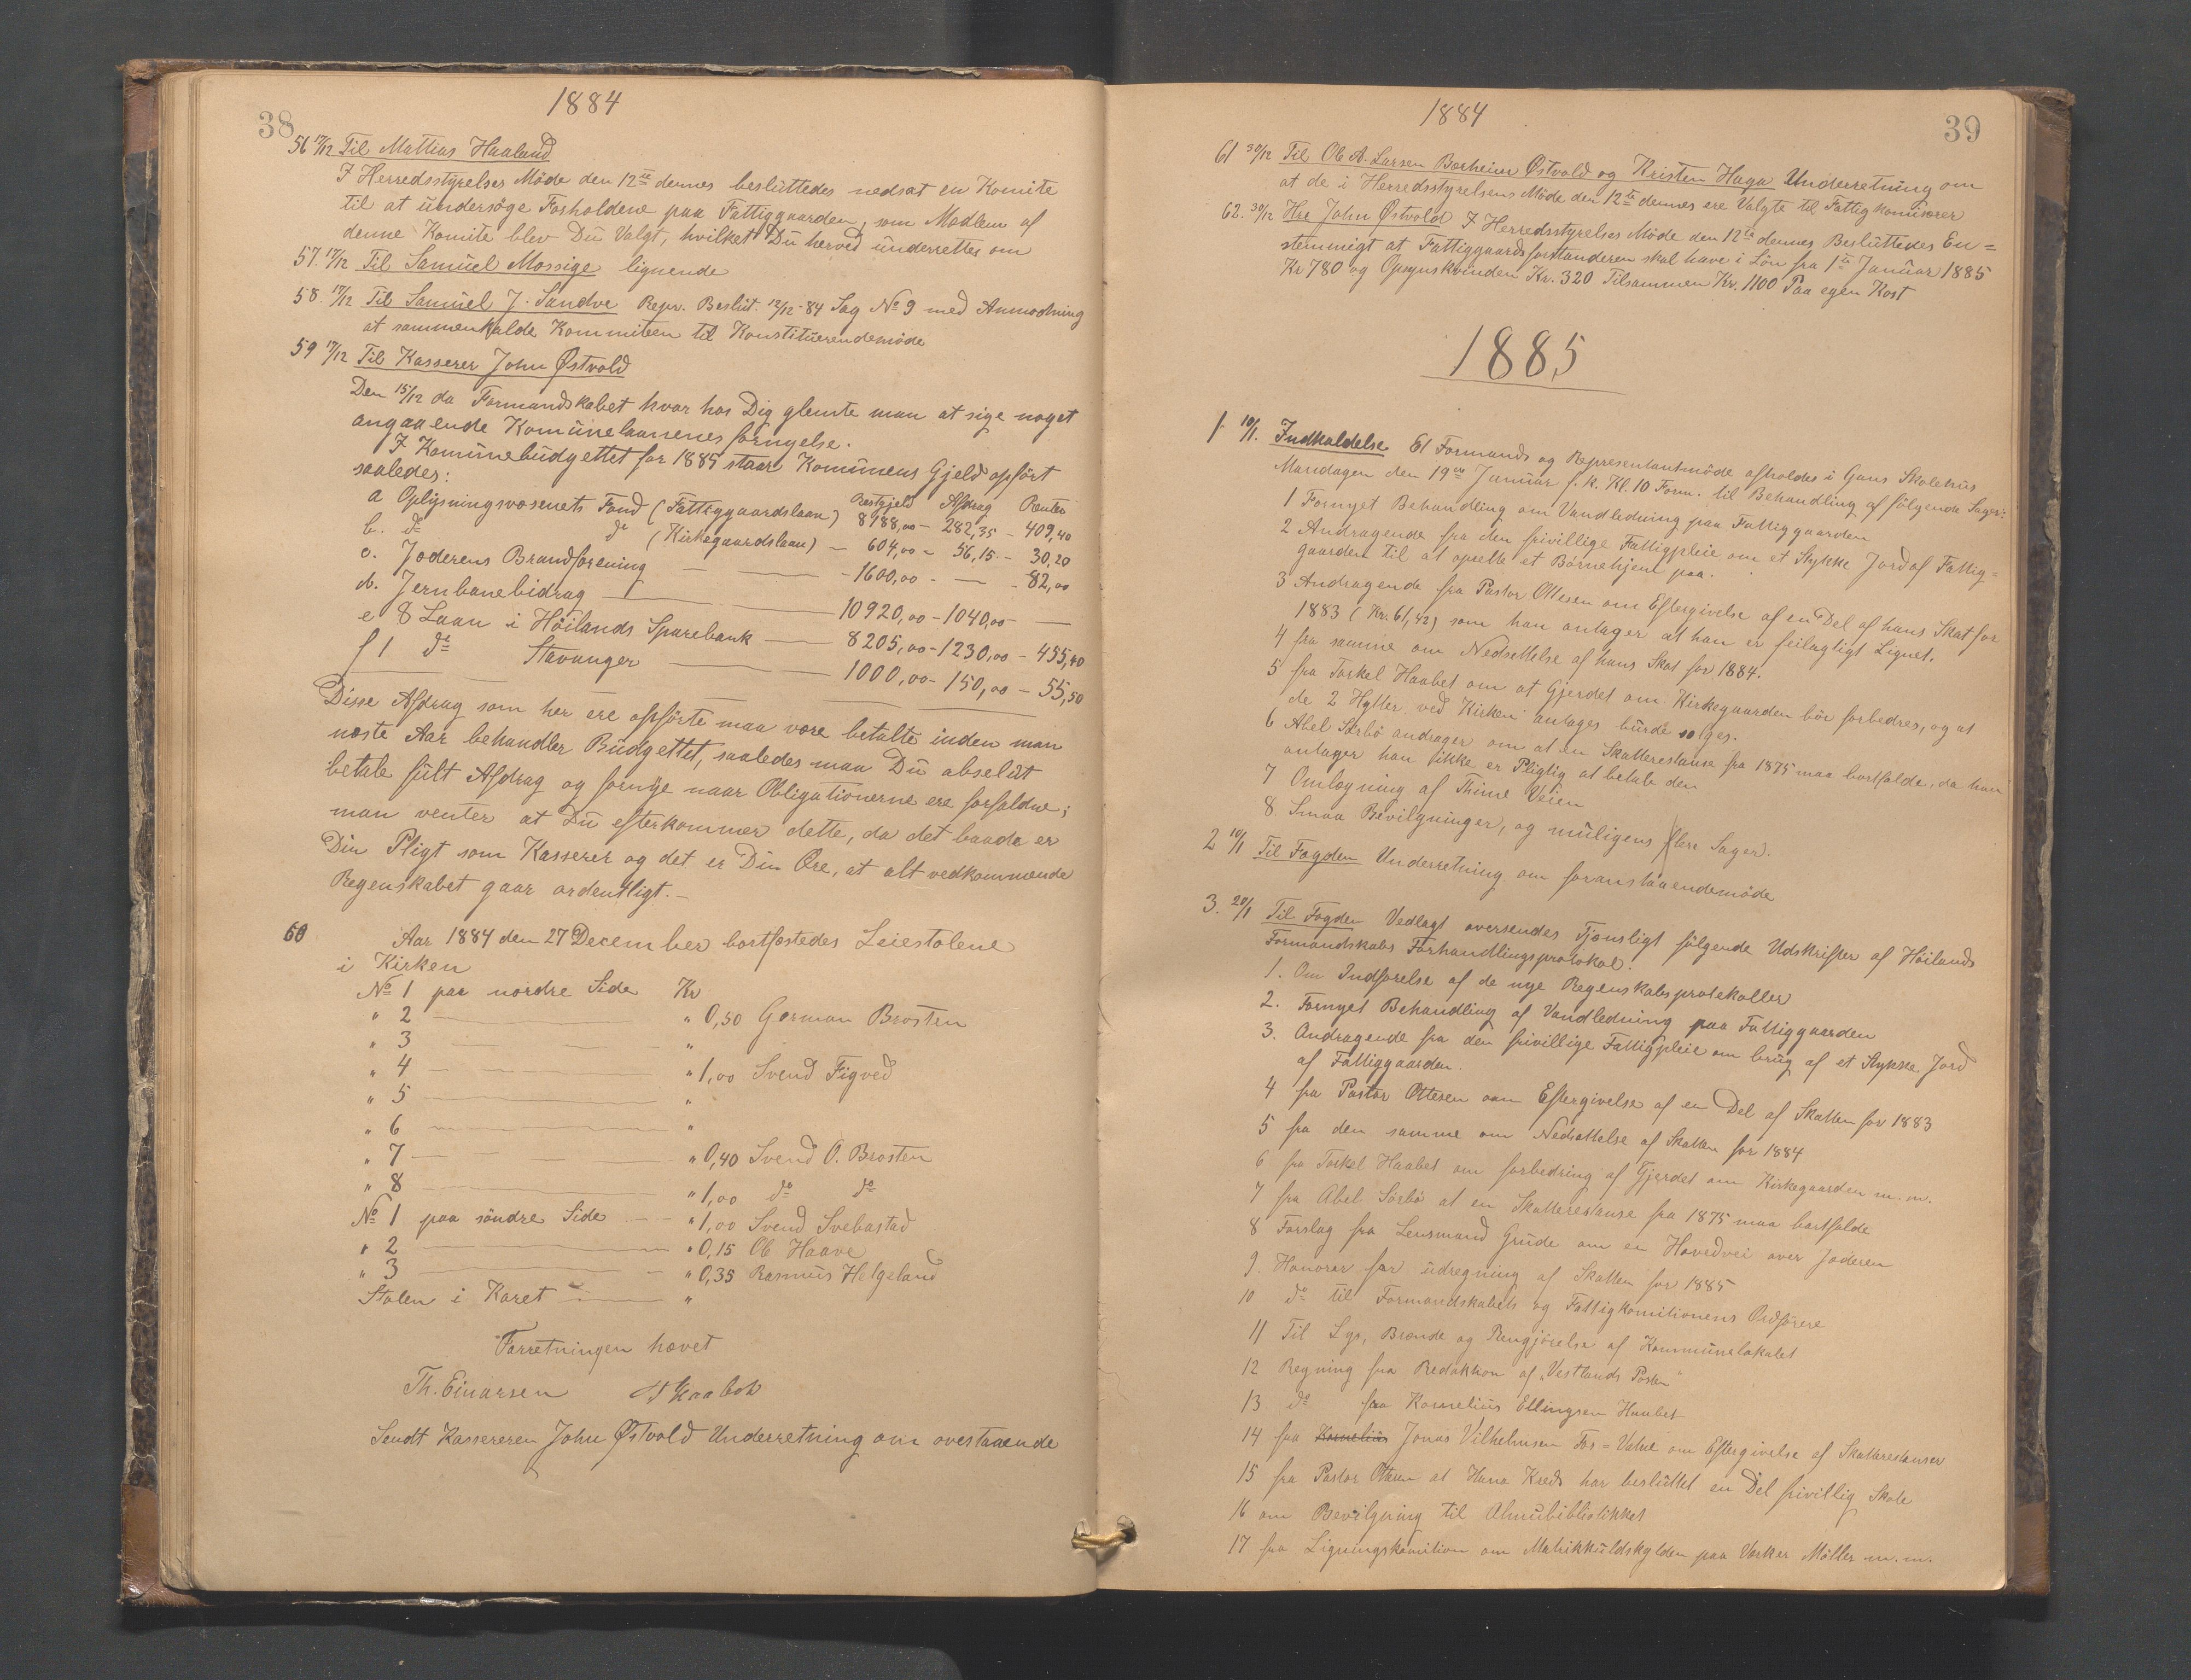 38
1884
56 17/12 Til Mattias Haaland
I Herredsstyrelses Möde den 12te dennes besluttedes nedsat en Komite
til at undersöge Forholdene paa Fattiggaarden, som Medlem af
denne Komite blev Du Valgt, hvilket Du herved underrettes om
57. 17/12 Til Samuel Mossige lignende
58. 17/12 Til Samuel J. Sandve Repr. Beslut. 12/12-84 Sag No 9 med Anmodning
at sammenkalde Kommiteen til Konstituerendemöde
59 17/12 Til Kasserer John Østvold
Den 15/12 da Formandskabet hvar hos Dig glemte man at sige noget
angaaende Komunelaanenes fornyelse.
I Komunebudgettet for 1885 staar Komunens Gjeld opfört
saaledes:
Restgjeld Afdrag Renter
a Oplysningsvæsenets Fond (Fattiggaardslaan) 8188,00 - 282,35 - 409,40
b. do do (Kirkegaardslaan) - 604,00 - 56,15 - 30,20
c. Jæderens Brandforening - 1600,00 - — - 82,00
d. Jernbanebidrag 10920,00 - 1040,00 —
e 8 Laan i Höilands Sparebank — 8205,00 - 1230,00 - 455,40
f 1 do Stavanger — 1000,00 - 150,00 - 55,50
Disse Afdrag som her ere opförte maa være betalte inden man
næste Aar behandler Budgettet, saaledes maa Du absolut
betale fült Afdrag og fornye naar Obligationerne ere forfaldne;
man venter at Du efterkommer dette, da det baade er
Din Pligt som Kasserer og det er Din Ære, at alt vedkommende
Regenskabet gaar ordentligt.-
60 Aar 1884 den 27 December bortfæstedes Leiestolene
i Kirken
No 1 paa nordre Side Kr
" 2 " 0,50 Gorman Brosten
" 3 "
" 4 " 1,00 Svend Figved
" 5 "
" 6 "
" 7 " 0,40 Svend O. Brosten
" 8 " 1,00 do do
No 1 paa söndre Side " 1,00 Svend Svebastad
" 2 " 0,15 Ob Haave
" 3 " 0,35 Rasmus Helgeland
Stolen i Koret "
Forretningen hævet
Th. Einarsen
Sendt Kassereren John Østvold Underretning om ovestaaende
39
1884
61 30/12 Til Ole A. Larsen Borheim Østvold og Kristen Haga Underretning om
at de i Herredsstyrelsens Möde den 12te dennes ere Valgte til Fattigkomisærer
62. 30/12 Hre John Østvold I Herredsstyrelses Möde den 12te dennes Besluttedes En=
stemmigt at Fattiggaardsforstanderen skal have i Lön fra 1te Januar 1885
Kr 780 og Opsynskvinden Kr. 320 Tilsammen Kr. 1100 Paa egen Kost
1885
1. 10/1. Indkaldelse Et Formands og Representantmöde afholdes i Gans Skolehus
Mandagen den 19de Januar f. k. Kl. 10 Form. til Behandling af fölgende Sager:
1 Fornyet Behandling om Vandledning paa Fattiggaarden
2 Andragende fra den frivillige Fattigpleie om et Stykke Jord af Fattig=
gaarden til at oprette et Börnehjem paa.
3 Andragende fra Pastor Ottesen om Eftergivelse af en Del af hans Skat for
1883 (Kr. 61,42) som han antager at han er feilagtigt Lignet.
4 fra samme om Nedsettelse af hans Skat for 1884.
5 fra Torkel Haabet om at Gjerdet om Kirkegaarden bör forbedres, og at
de 2 Hytter ved Kirken antages burde sælges.
6 Abel Sörbö andrager om at en Skatterestanse fra 1875 maa bortfalde, da han
antager han ikke er Pligtig at betale den
7 Omlægning af Thime Veien
8. Smaa Bevilgninger, og muligens flere Sager.
2 10/1 Til Fogden Underretning om foranstaaendemöde
3. 20/1 Til Fogden Vedlagt oversendes Tjenstligt fölgende Udskrifter af Höilands
Formandskabs Forhandlingsprotokol.
1. Om Indförelse af de nye Regenskabsprotokoller
2. Fornyet Behandling af Vandledning paa Fattiggaarden
3. Andragende fra den frivillige Fattigpleie om brug af et Stykke Jord
af Fattiggaarden.
4 fra Pastor Ottesen om Eftergivelse af en Del af Skatten for 1883
5 fra den samme om Nedsettelse af Skatten for 1884
6 fra Torkel Haabet om forbedring af Gjerdet om Kirkegaarden m. m.
7 fra Abel Sörbö at en Skatterestanse fra 1875 maa bortfalde
8 Forslag fra Lensmand Grude om en Hovedvei over Jæderen
9. Honorar for udregning af Skatten for 1885
10 do til Formandskabets og Fattigkomitionens Ordförere
11 Til Lys, Brænde og Rengjörelse af Kommunelokalet
12 Regning fra Redaktion af "Vestlands Posten"
13 do fra Kornelius Ellingsen Haabet
14 fra Kornelius Jonas Vilhelmsen Fos=Vatne om Eftergivelse af Skatterestanser
15 fra Pastor Ottesen at Hana Kreds har besluttet en Del frivillig Skole
16 om Bevilgning til Almubibliotikket
17 fra Ligningskomition om Matrikkulskylden paa Vasker Möller m. m.